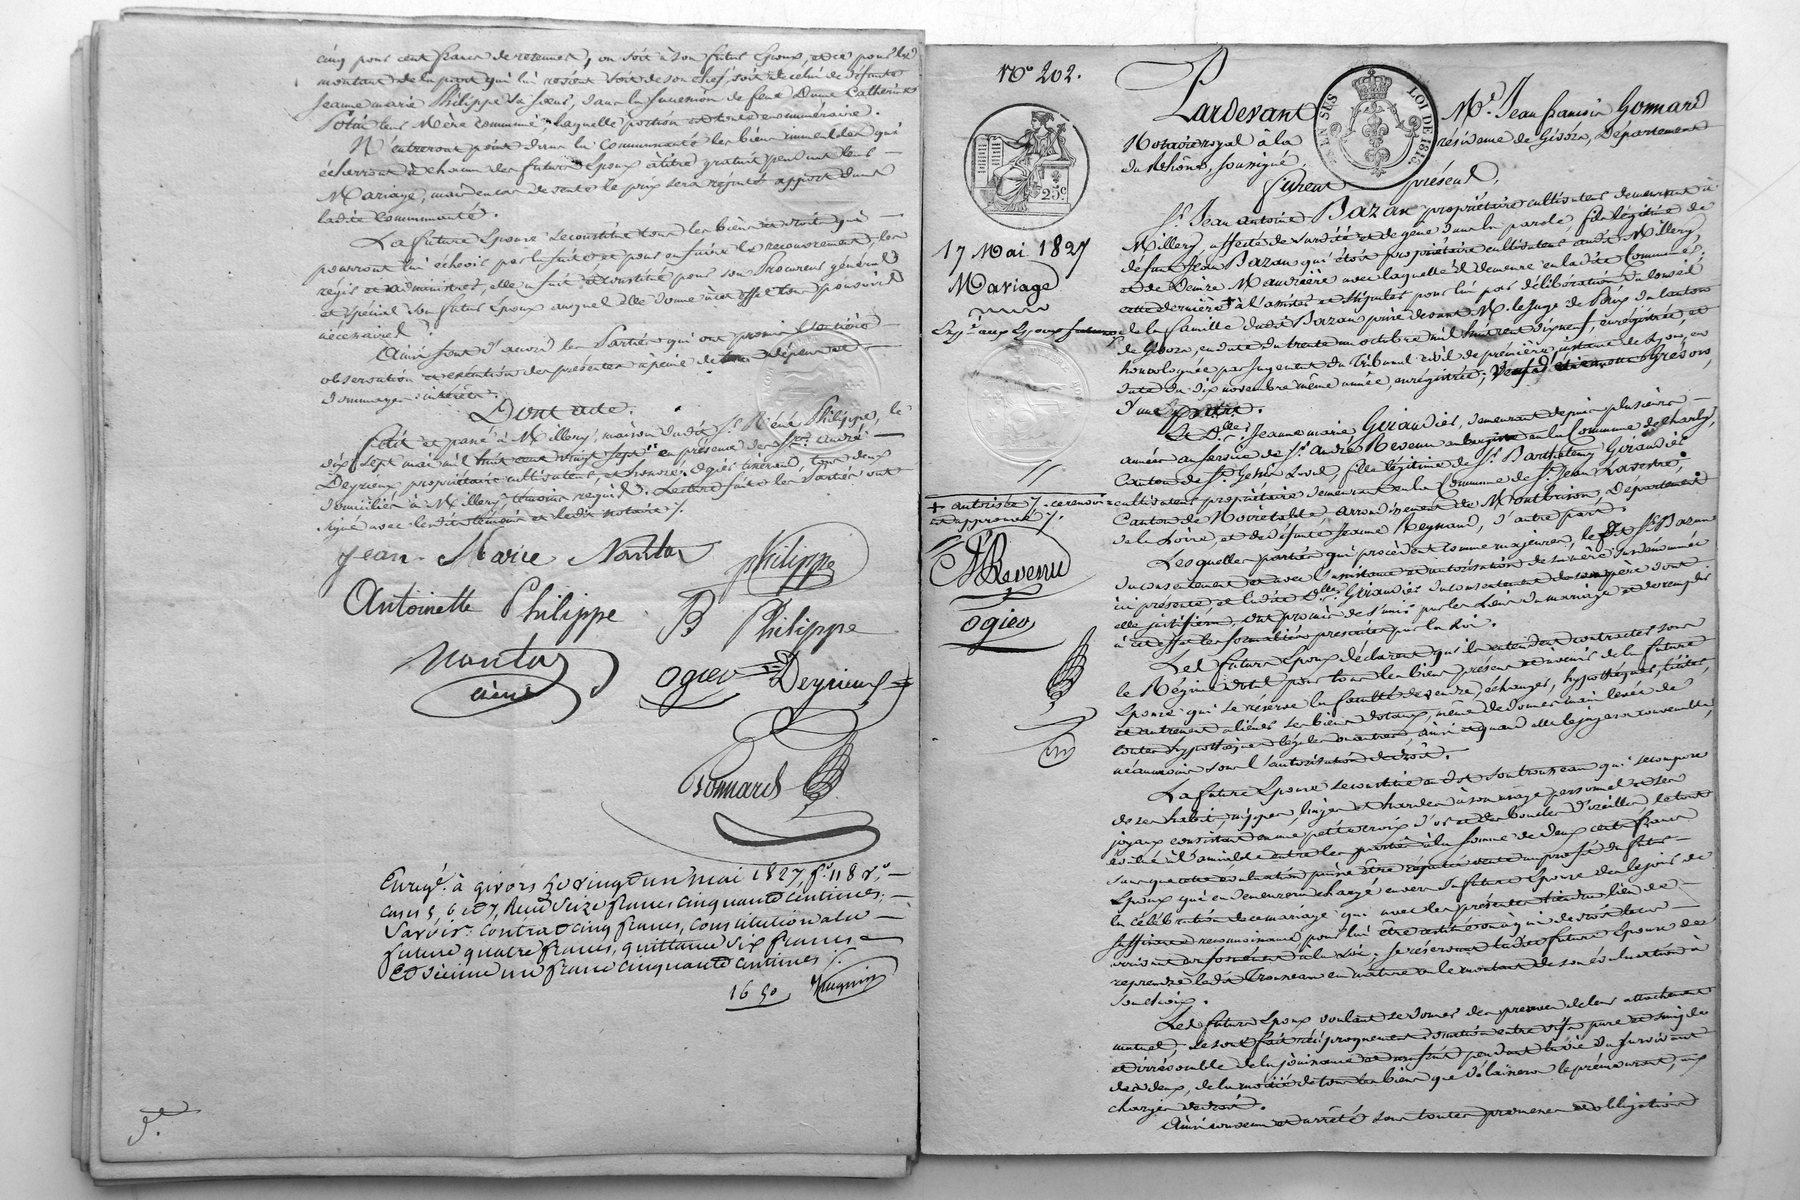 cinq pour cent francs de retenue, ou soit à son futur Epoux, et ce pour le
montant de la part qui lui revient soit de son chef, soit de celui de défunte
Jeanne marie Philippe sa sœur, dans la succession de feue Dame Catherine
leur Mère commune, laquelle portion est toute en numéraire.
N'entreront point dans la Communauté les biens immeubles qui
écherront à chacun des futurs Epoux à titre gratuit pendant leur
Mariage, mais en cas de vente le prix sera réputé apport dans
ladite Communauté.
La future Epouse se constitue tous les biens et droits qui
pourront lui échoir par la suite et pour en faire le recouvrement, les
régir et administrer, elle a fait et constitué pour son Procureur général
et spécial son futur Epoux auquel elle donne à cet effet tous pouvoirs
nécessaires.
Ainsi sont d'accord les Parties qui ont promis
observation et exécution des présentes à peine de tous dépens et
dommages intérêts.
Dont acte.
Fait et passé à Millery, maison dudit Sr. Réné Philippe, le
dix sept mai mil huit cent vingt sept en présence des Srs. andré
Deyrieux propriétaire cultivateur, et honoré Ogier tisserand, tous deux
domiciliés à Millery témoins requis. Lecture faite les Parties ont
signé avec lesdits témoins et ledit notaire /.
Jean Marie Nantas Philippe
Antoinette Philippe B Philippe
Nantas ogier Deyrieux
ainé
Gonnard
Enregt. à givors le vingt un mai 1827 f° 118 r°,
cases 5, 6 et 7, Reçu Seize francs cinquante centimes,
Savoir: Contrat cinq francs, constitution à la
future quatre francs, quittance six francs
et dixième un franc cinquante centimes /.
16 50
N° 202.
25c
17 Mai 1827
Mariage
Expé. aux Epoux
+ autorisée /. ce renvoi
est approuvé /.
A Revenu
ogier
EN SES
LOI DE 1816
Pardevant Me. Jean francois Gonnard
Notaire royal à la résidence de Givors, Département
du Rhône, soussigné,
Furent présens,
Sr. Jean antoine Bazan propriétaire cultivateur demeurant à
Millery, affecté de surdité et de gêne dans la parole, fils légitime de
défunt Jean Bazan qui étoit propriétaire cultivateur audit Millery,
et de Denise Maudière avec laquelle il demeure en ladite Commune,
cette dernière + à l'assister et stipuler pour lui par délibération du Conseil
de la famille dudit Bazan prise devant M. le Juge de Paix du Canton
de Givors, en date du trente un octobre mil huit cent dix neuf, enregistrée, et
homologuée par Jugement du Tribunal civil de première instance de Lyon, en
date du dix novembre même année, enregistré;
d'une part.
Et Dlle. Jeanne marie Giraudier, demeurant depuis plusieurs
années au service de Sr. André Revenu aubergiste en la Commune de charly,
Canton de St. Genis Laval, fille légitime de Sr. Barthelemy Giraudier
cultivateur propriétaire demeurant en la Commune de St. Jean Lavestre,
Canton de Noiretable arrondissement de Montbrison, Département
de la Loire, et de défunte Jeanne Reynaud, d'autre part.
Lesquelles parties qui procèdent comme majeures, le dt. Sr. Bazan
du consentement et avec l'assistance et autorisation de sa mère susnommée
ici présente, et ladite Dlle. Giraudier du consentement de son père dont
elle justifiera, ont promis de s'unir par les liens du mariage et de remplir
à cet effet les formalités prescrites par la Loi.
Les futurs Epoux déclarent qu'ils entendent contracter sous
le Régime dotal pour tous les biens présens et avenir de la future
Epouse qui se réserve la faculté de vendre, échanger, hypothéquer, traiter
et autrement aliéner ses biens dotaux, même de donner main levée de
toutes hypothèques légales ou autres, ainsi et quand elle le jugera convenable,
néanmoins sous l'autorisation de droit.
La future Epouse se constitue en dot son trousseau qui se compose
de ses habits, nippes, linges et hardes à son usage personnel et ses
joyaux consistant en une petite croix d'or et des boucles d'oreilles le tout
évalué à l'amiable entre les parties à la somme de deux cents francs
sans que cette évaluation puisse être réputée vente au profit du futur
Epoux qui en demeurera chargé envers sa future Epouse du jour de
la célébration de ce mariage qui avec les présentes tiendra lieu de
suffisante reconnaissance pour lui être restitué ou à qui de droit le cas
arrivant conformément à la Loi, se réservant ladite future Epouse de
reprendre ledit Trousseau en nature ou le montant de son évaluation à
son choix.
Les futurs Epoux voulant se donner des preuves de leur attachement
mutuel se sont fait réciproquement donation entre vifs pure et simple
et irrévocable de la jouissance et usufruit pendant la vie du survivant
des deux, de la moitié de tous les biens que délaissera le prémourant, aux
charges de droit.
Ainsi convenu et arrêté sous toutes promesses et obligations